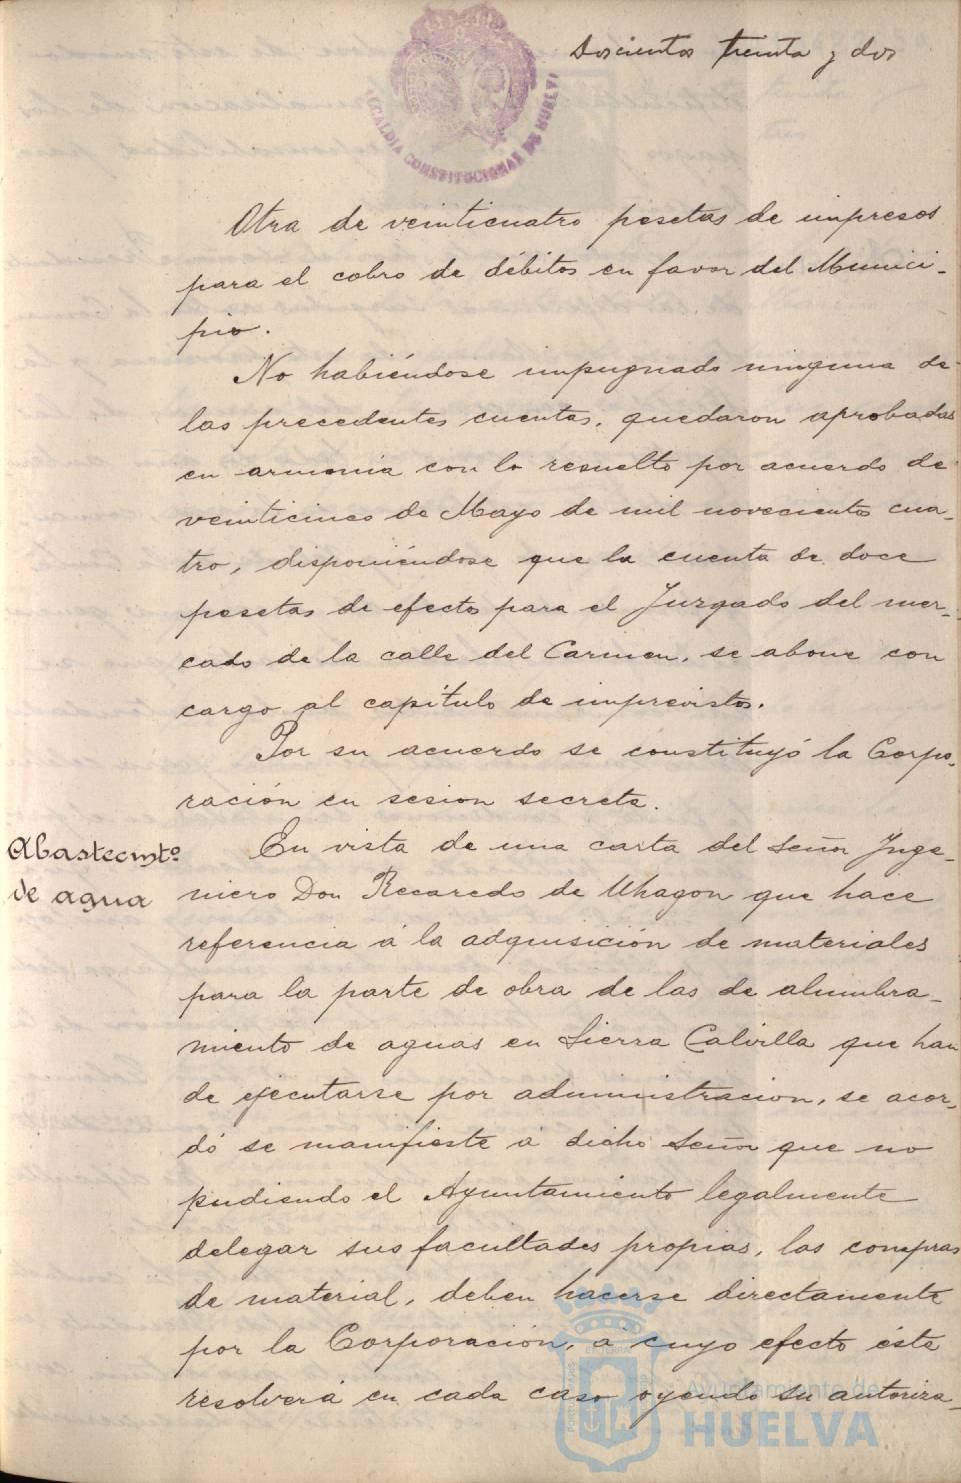 Doscientos treinta y dos
ALCALDIA CONSTITUCIONAL DE HUELVA
Otra de veinticuatro pesetas de impresos
para el cobro de débitos en favor del Munici-
pio.
No habiéndose impugnado ninguna de
las precedentes cuentas, quedaron aprobadas
en armonia con lo resuelto por acuerdo de
veinticinco de Mayo de mil novecientos cua-
tro, disponiéndose que la cuenta de doce
pesetas de efectos para el Juzgado del mer-
cado de la calle del Carmen, se abone con
cargo al capítulo de imprevistos.
Por su acuerdo se constituyó la Corpo-
ración en sesion secreta.
Abastecmtº
de agua
En vista de una carta del Señor Inge-
niero Don Recaredo de Uhagon que hace
referencia á la adquisición de materiales
para la parte de obra de las de alumbra-
miento de aguas en Sierra Calvilla que han
de ejecutarse por administracion, se acor-
dó se manifieste á dicho Señor que no
pudiendo el Ayuntamiento legalmente
delegar sus facultades propias, las compras
de material, deben hacerse directamente
por la Corporación, á cuyo efecto ésta
resolverá en cada caso oyendo su autoriza-
Ayuntamiento de
HUELVA